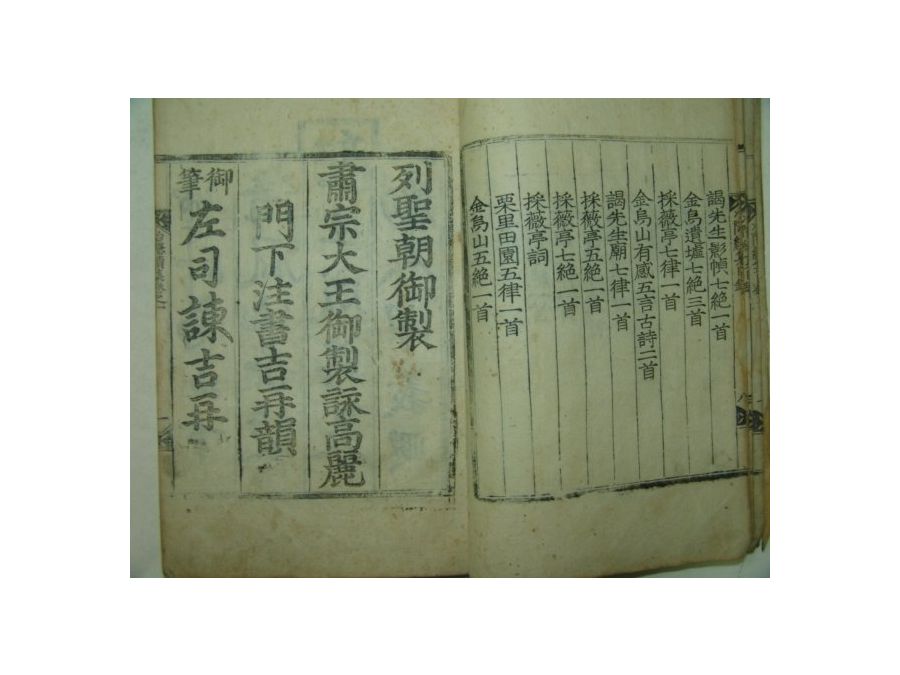 謁先生影幀七絶一首
金烏遺墟七絶三首
採薇亭七律一首
金烏山有感五言古詩二首
謁先生廟七律一首
採薇亭五絶一首
採薇亭七絶一首
採薇亭詞
栗里田園五律一首
金烏山五絶一首
列聖朝御製
肅宗大王御製詠高麗
門下注書吉再韻
御筆左司諫吉再